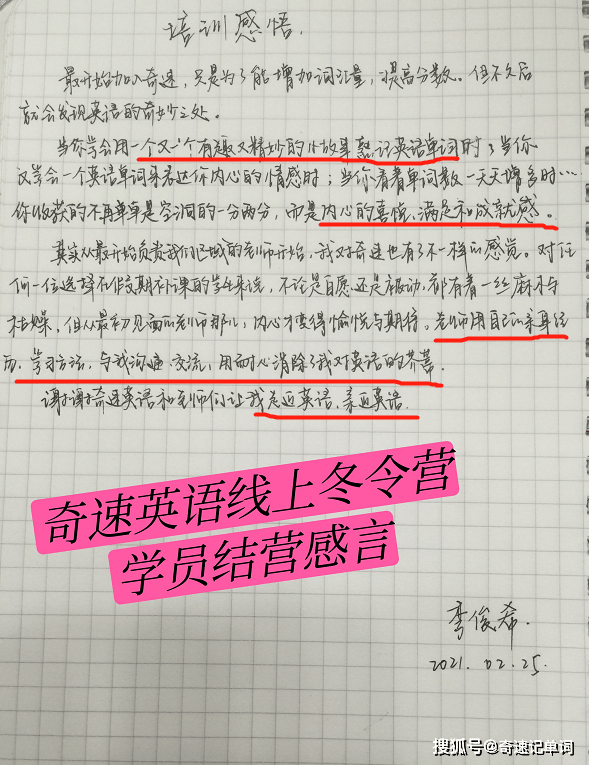 培训感悟.
最开始加入奇速，只是为了能增加词汇量，提高分数。但不久后
就会发现英语的奇妙之处。
当你学会用一个又一个有趣又精妙的小故事熟记英语单词时；当你
又学会一个英语单词来表达你内心的情感时；当你看着单词数一天天增多时…
你收获的不再单单是学词的一分两分，而是内心的喜悦、满足和成就感。
其实从最开始负责我们的老师开始，我对奇速也有了不一样的感觉。对任
何一位选择在假期补课的学生来说，不论是自愿还是被动，都有着一丝麻木与
枯燥，但从最初见面的老师那儿，内心才变得愉悦与期待。老师用自己的亲身经
历、学习方法，与我沟通、交流，用耐心消除了我对英语的芥蒂.
谢谢奇速英语和老师们让我走近英语、亲近英语.
奇速英语线上冬令营
学员结营感言
俊希.
2021. 02. 25.
搜狐号@奇速记单词